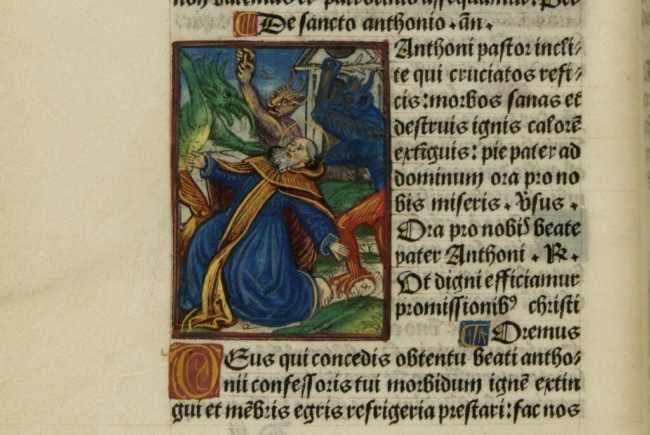 De sancto anthonio. añ.
Anthoni pastor incli⸗
te qui cruciatos refi⸗
cis: morbos sanas et
destruis ignis calorē
extĩguis: pie pater ad
dominum ora pro no
bis miseris. ṽsus.
Ora pro nobis beate
pater Anthoni. ℟.
Ut digni efficiamur
promissionibꝰ christi
Oremus
Deus qui concedis obtentu beati antho⸗
nii confessoris tui morbidum ignē extin
gui et mēbris egris refrigeria prestari: fac nos